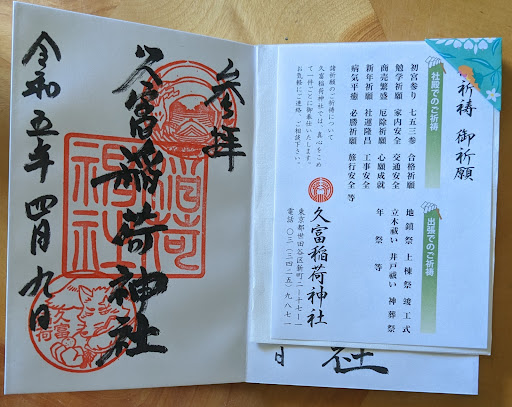 祈祷 御祈願
社殿でのご祈祷
初宮参り 七五三参 合格祈願
勉学祈願 家内安全 交通安全
商売繁盛 厄除祈願 心願成就
新年祈願 社運隆昌 工事安全
病気平癒 必勝祈願 旅行安全 等
出張でのご祈祷
地鎮祭 上棟祭 竣工式
立木祓い 井戸祓い 神葬祭
年祭 等
諸祈願のご祈祷について
久富稲荷神社では、真心をこめ
て一件ごとに御奉仕いたします。
お気軽にご連絡、ご相談下さい。
久富稲荷神社
東京都世田谷区新町二ー十七ー一
電話 〇三(三四二五)九八七一
社
日
参拝
久富稲荷神社
令和五年四月九日
久富
稲荷